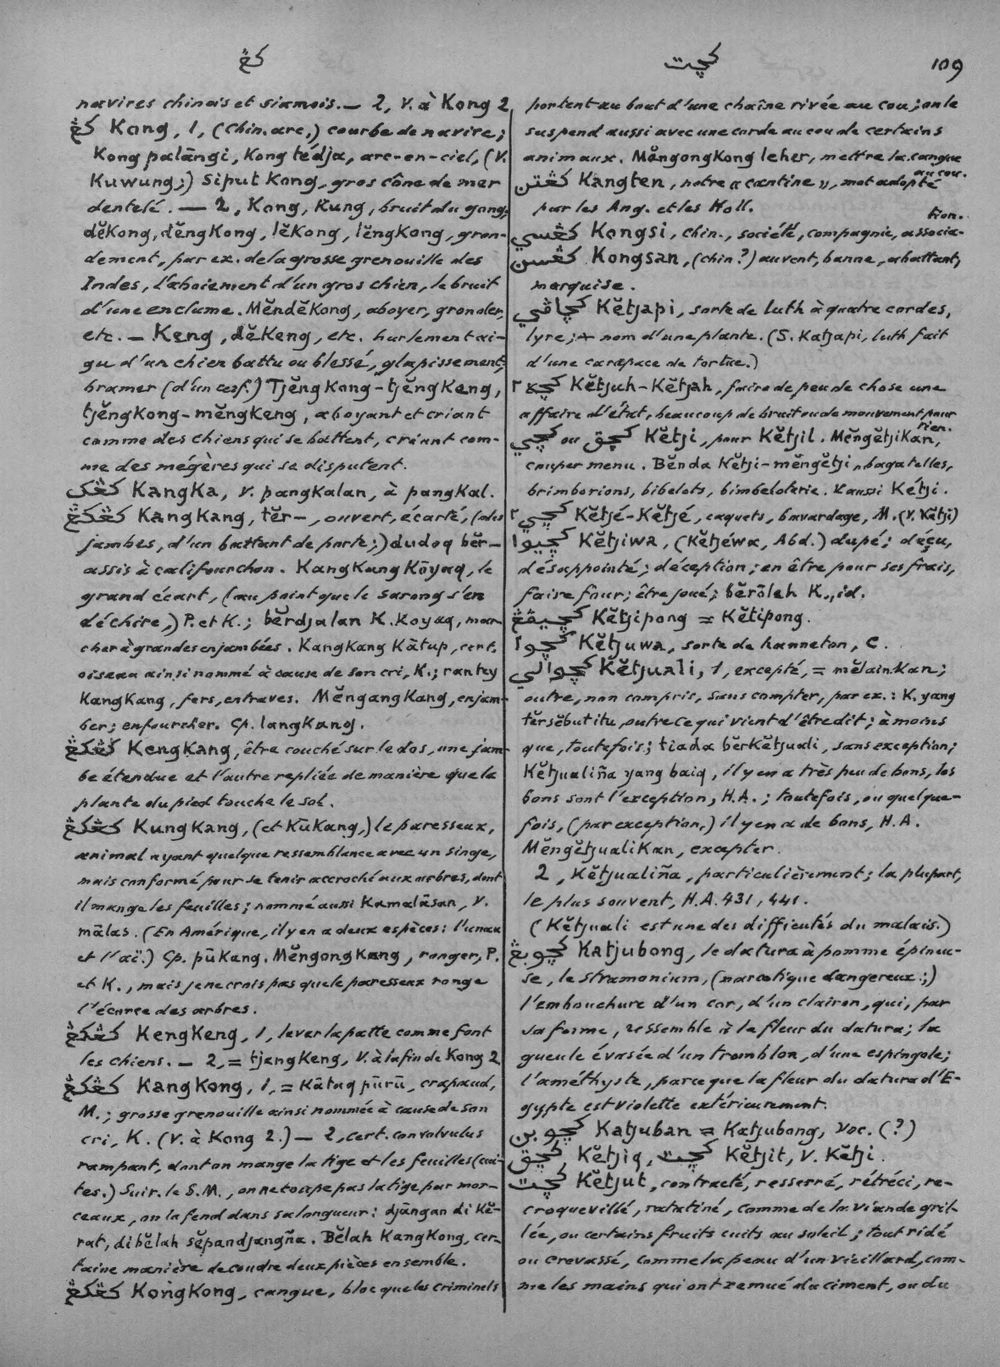 كڠ
كچت
109
navires chinois et siamois. — 2, V. à Kong 2
كڠ Kong, 1, (chin. arc,) courbe de navire;
Kong palāngi, Kong tédja, arc-en-ciel, (V.
Kuwung;) Siput Kong, gros cône de mer
dentelé. — 2, Kong, Kung, bruit du gong;
dĕKong, dĕngKong, lĕKong, lĕngKong, gron-
dement, par ex. de la grosse grenouille des
Indes, l'aboiement d'un gros chien, le bruit
d'une enclume. MĕndĕKong, aboyer, gronder,
etc. — Keng, dĕKeng, etc. hurlement ai-
gu d'un chien battu ou blessé, glapissement;
bramer (d'un cerf.) TjĕngKong-tjĕngKeng,
tjĕngKong-mĕngKeng, aboyant et criant
comme des chiens qui se battent, criant com-
me des mégères qui se disputent.
كڠك KangKa, V. pangKalan, à pangKal.
كڠكڠ KangKang, tĕr—, ouvert, écarté, (des
jambes, d'un battant de porte;) dudoq bĕr—
assis à califourchon. KangKang Kōyaq, le
grand écart, (au point que le sarong s'en
déchire,) P. et K.; bĕrdjalan K. Koyaq, mar-
cher à grandes enjambées. KangKang Kātup, cert.
oiseau ainsi nommé à cause de son cri, K.; rantey
KangKang, fers, entraves. MĕngangKang, enjam-
ber; enfourcher. Cp. langKang.
كڠكڠ KengKang, être couché sur le dos, une jam-
be étendue et l'autre repliée de manière que la
plante du pied touche le sol.
كڠكڠ KungKang, (et KūKang,) le paresseux,
animal ayant quelque ressemblance avec un singe,
mais conformé pour se tenir accroché aux arbres, dont
il mange les feuilles; nommé aussi Kamalāsan, V.
mālas. (En Amérique, il y en a deux espèces: l'unau
et l'aï.) Cp. pūKang. MĕngongKang, ronger, P.
et K., mais je ne crois pas que le paresseux ronge
l'écorce des arbres.
كڠكڠ KengKeng, 1, lever la patte comme font
les chiens. — 2, = tjengKeng, V. à la fin de Kong 2
كڠكڠ KangKong, 1, = Kātaq pūrū, crapaud,
M.; grosse grenouille ainsi nommée à cause de son
cri, K. (V. à Kong 2.) — 2, cert. convolvulus
rampant, dont on mange la tige et les feuilles (cui-
tes.) Suiv. le S.M., on ne coupe pas la tige par mor-
ceaux, on la fend dans sa longueur: djāngan di Kĕ-
rat, di bĕlah sĕpandjangña. Bĕlah KangKong, cer-
taine manière de coudre deux pièces ensemble.
كڠكڠ KongKong, cangue, bloc que les criminels
portent au bout d'une chaîne rivée au cou; on le
suspend aussi avec une corde au cou de certains
animaux. MăngongKong leher, mettre la cangue
au cou.
كڠتن Kangten, notre « cantine », mot adopté
par les Ang. et les Holl.
كڠسي Kongsi, chin., société, compagnie, associa-
tion.
كڠسن Kongsan, (chin?) auvent, banne, abattant,
marquise.
كچاڤي Kĕtjapi, sorte de luth à quatre cordes,
lyre; nom d'une plante. (S. Katjapi, luth fait
d'une carapace de tortue.)
كچه٢ Kĕtjuh-Kĕtjah, faire de peu de chose une
affaire d'état, beaucoup de bruit ou de mouvement pour
rien.
كچي ou كچق Kĕtji, pour Kĕtjil. MĕngĕtjiKan,
couper menu. Bĕnda Kĕtji-mĕngĕtji, bagatelles,
brimborions, bibelots, bimbeloterie. V. aussi Kétji.
كچي٢ Kĕtjé-Kĕtjé, caquets, bavardage, M. (V. Kātji)
كچيوا Kĕtjiwa, (Kĕtjéwa, Abd.) dupé; déçu,
désappointé; déception; en être pour ses frais,
faire four; être joué; bĕrōleh K., id.
كچيڤڠ Kĕtjipong = Kĕtipong.
كچوا Kĕtjuwa, sorte de hanneton, C.
كچوالي Kĕtjuali, 1, excepté, = mĕlainKan;
outre, non compris, sans compter, par ex.: K. yang
tĕrsĕbut itu, outre ce qui vient d'être dit; à moins
que, toutefois; tiada bĕrKĕtjuali, sans exception;
Kĕtjualiña yang baiq, il y en a très peu de bons, les
bons sont l'exception, H.A.; toutefois, ou quelque-
fois, (par exception,) il y en a de bons, H.A.
MĕngĕtjualiKan, excepter.
2, Kĕtjualiña, particulièrement; la plupart,
le plus souvent, H.A. 431, 441.
(Kĕtjuali est une des difficutés du malais.)
كچوبڠ Katjubong, le datura à pomme épineu-
se, le stramonium, (narcotique dangereux;)
l'embouchure d'un cor, d'un clairon, qui, par
sa forme, ressemble à la fleur du datura; la
gueule évasée d'un tromblon, d'une espingole;
l'améthyste, parce que la fleur du datura d'E-
gypte est violette extérieurement.
كچوبن Katjuban = Katjubong, Voc. (?)
كچق Kĕtjiq, كچت Kĕtjit, V. Kĕtji.
كچت Kĕtjut, contracté, resserré, rétréci, re-
croquevillé, ratatiné, comme de la viande gril-
lée, ou certains fruits cuits au soleil; tout ridé
ou crevassé, comme la peau d'un vieillard, com-
me les mains qui ont remué du ciment, ou du